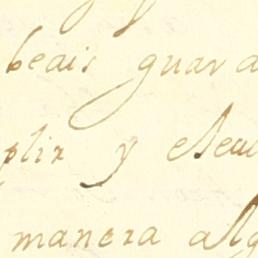 beais guard
plir y eseu
manera alg